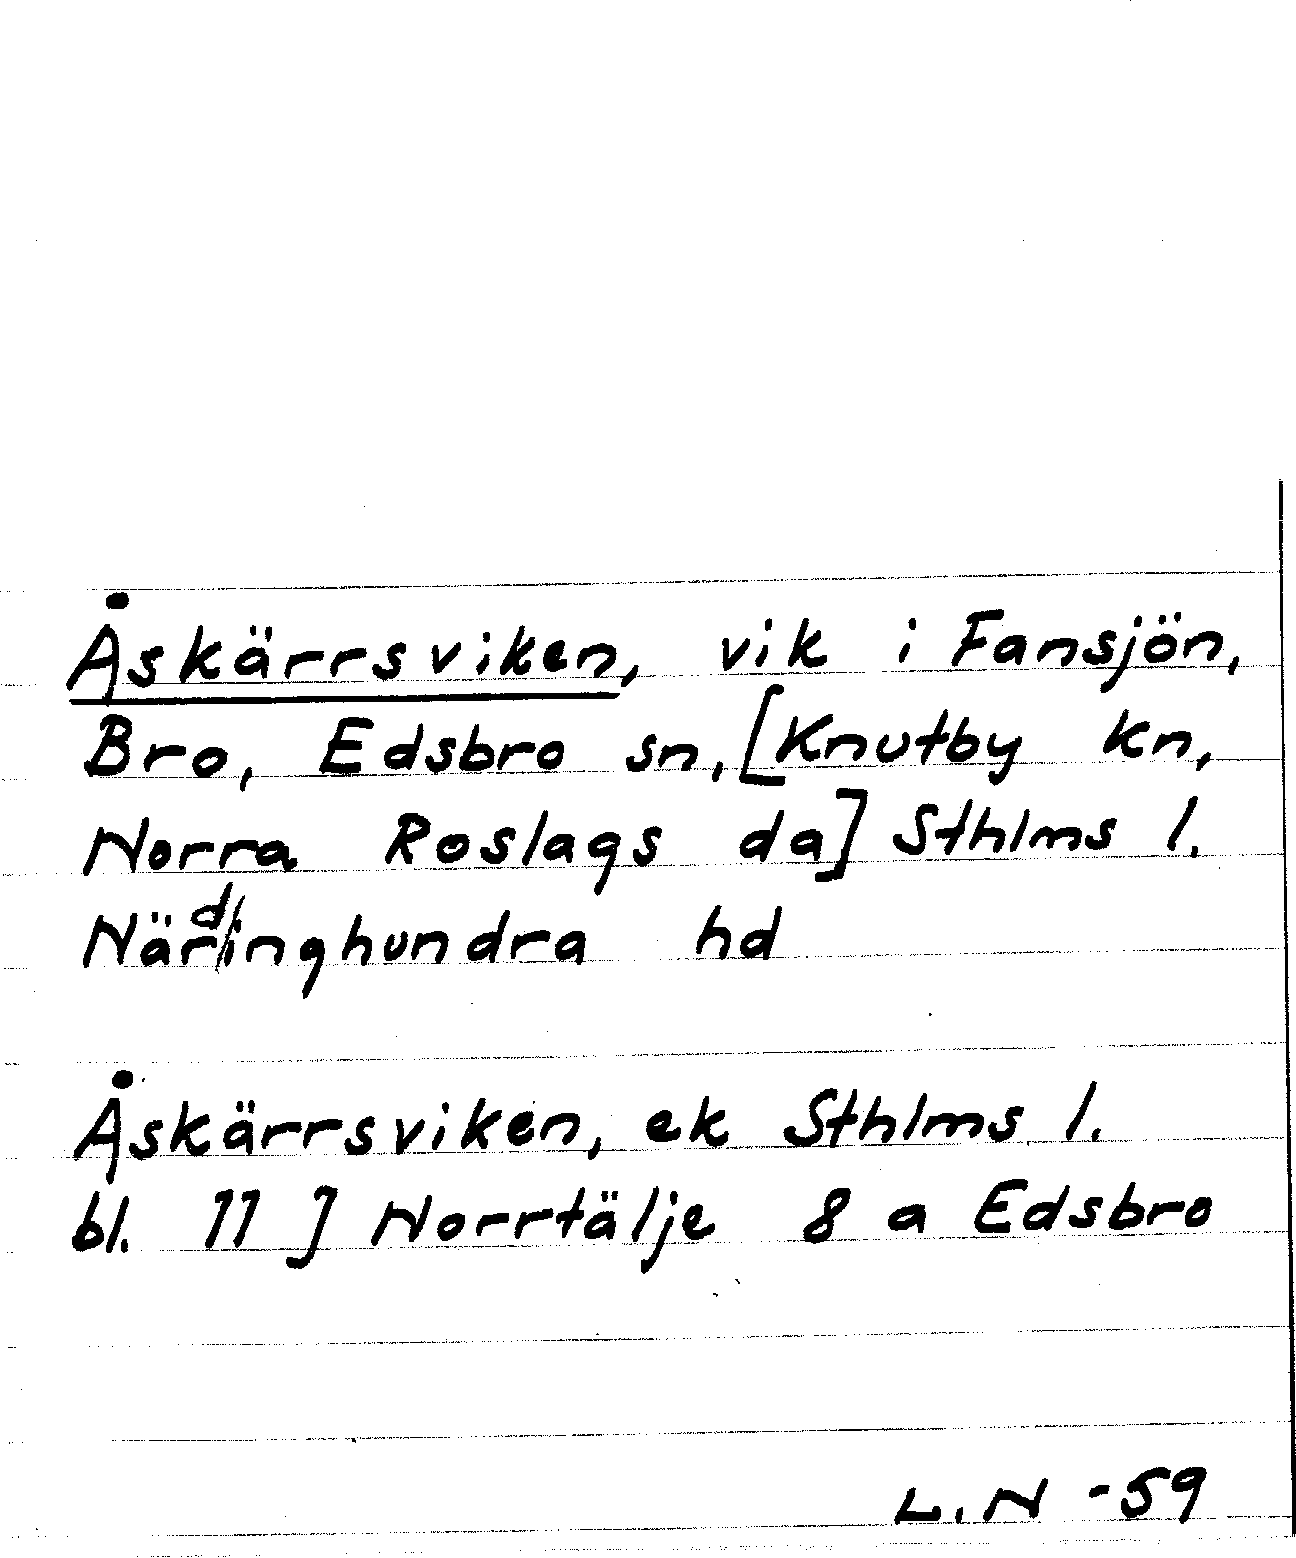 Åskärrsviken, vik i Fansjön,
Bro, Edsbro sn, [Knutby kn,
Norra Roslags da] Sthlms l.
Närdinghundra hd
Åskärrsviken, ek Sthlms l.
bl. 11 J Norrtälje 8 a Edsbro
L.N -59